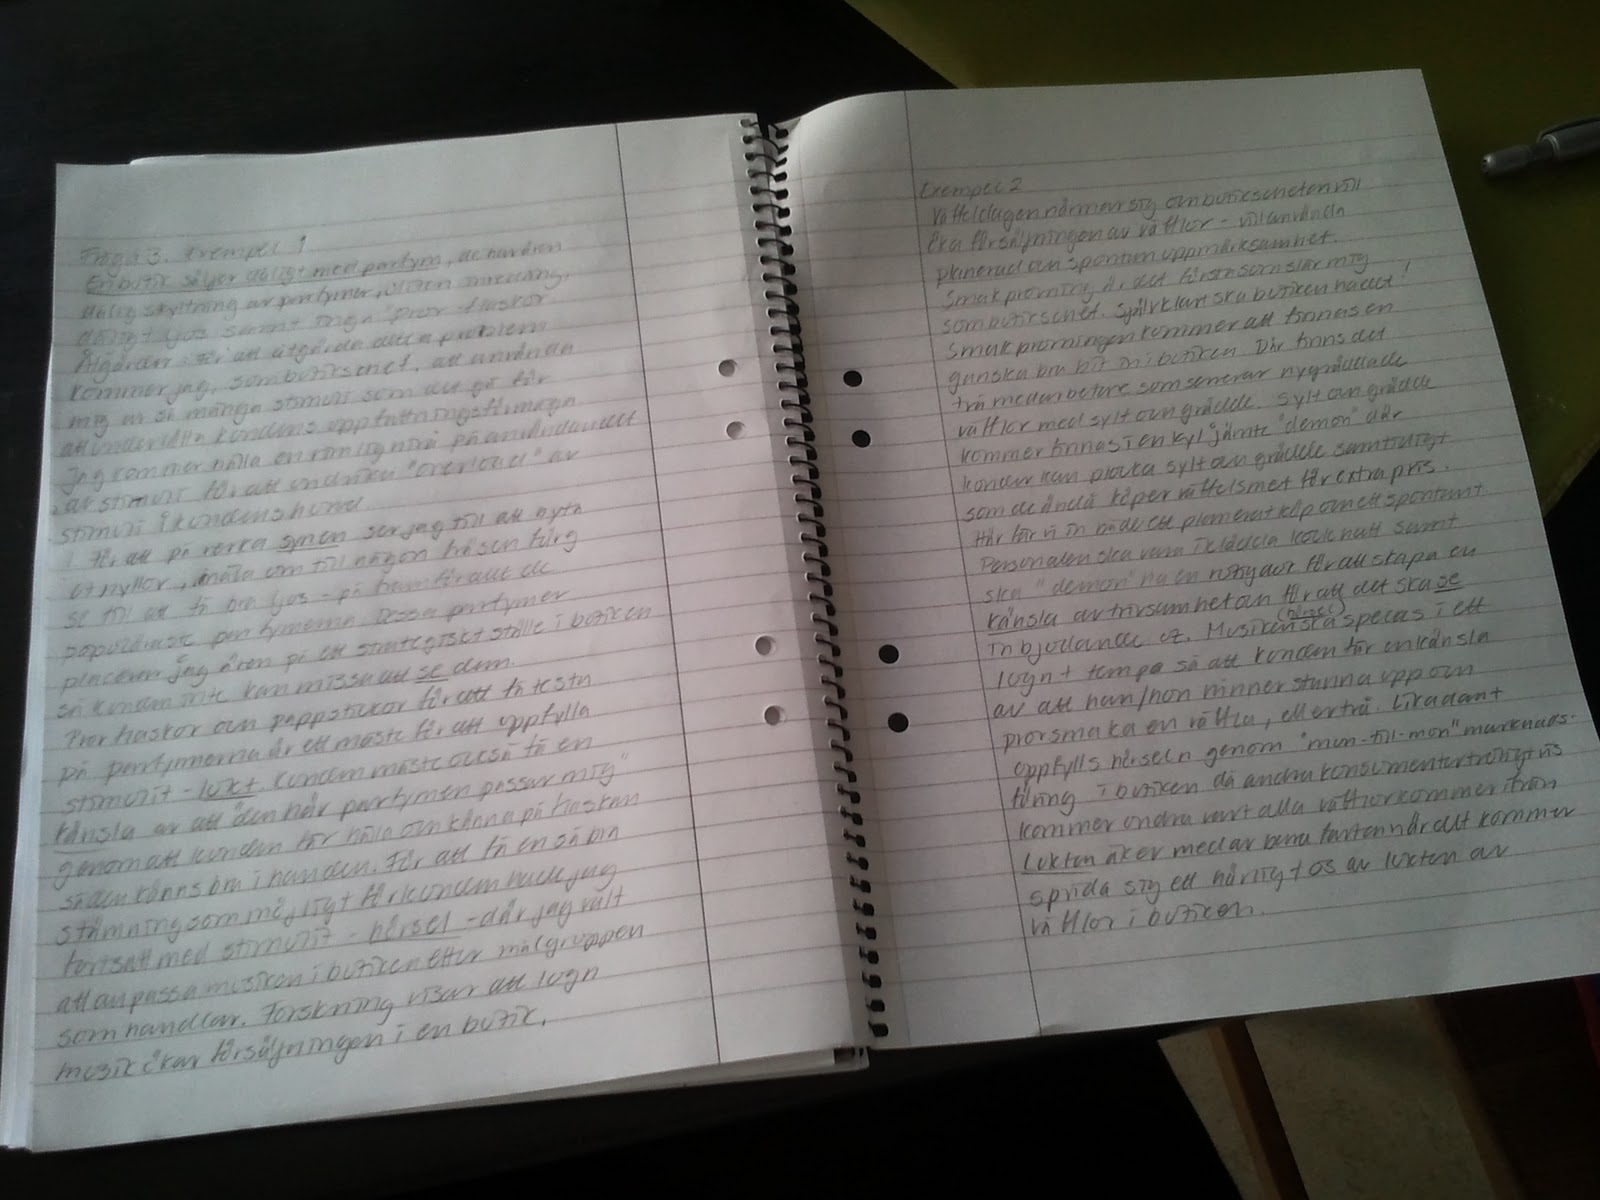 Fråga 3. Exempel 1
En butik säljer dåligt med parfym, de har den
dålig skyltning av parfymer, liten mängd,
dåligt ljus samt inga "prov"-flaskor
Åtgärder: För att åtgärda detta problem
kommer jag, som butikschef, att använda
mig av så många stimuli som det går för
att underlätta kundens uppfattningsförmåga
Jag kommer hålla en rimlig nivå på användandet
av stimuli för att undvika "overload" av
stimuli i kundens huvud.
För att påverka synen ser jag till att byta
ut hyllor, måla om till någon fräsch färg
se till att få bra ljus - på framförallt de
populäraste parfymerna. Dessa parfymer
placerar jag även på ett strategiskt ställe i butiken
så kunden inte kan missa att se dem.
Provflaskor och pappstickor för att få testa
på parfymerna är ett måste för att uppfylla
stimulit - lukt. Kunden måste också få en
känsla av att "den här parfymen passar mig"
genom att kunden får hålla och känna på flaskan
så den känns bra i handen. För att få en så bra
stämning som möjligt för kunden hade jag
fortsatt med stimulit - hörsel - där jag valt
att anpassa musiken i butiken efter målgruppen
som handlar. Forskning visar att lugn
musik ökar försäljningen i en butik.
Exempel 2
Våffeldagen närmar sig och butikschefen vill
öka försäljningen av våfflor - vill använda
planerad och spontan uppmärksamhet.
Smakprovning är det första som slår mig
som butikschef. Självklart ska butiken ha det!
Smakprovningen kommer att finnas en
ganska bra bit in i butiken. Där finns det
två medarbetare som serverar nygräddade
våfflor med sylt och grädde. Sylt och grädde
kommer finnas i en kyl jämte "demon" där
kunder kan plocka sylt och grädde samtidigt
som de ändå köper våffelsmet för extra pris.
Här får vi in både ett planerat köp och ett spontant.
Personalen ska vara iklädda kockhatt samt
ska "demon" ha en rutig duk för att skapa en
känsla av trivsamhet och för att det ska se
inbjudande ut. Musiken (hörsel) ska spelas i ett
lugnt tempo så att kunden får en känsla
av att han/hon hinner stanna upp och
provsmaka en våffla, eller två. Likadant
uppfylls hörseln genom "mun-till-mun" marknads-
föring i butiken då andra konsumenter troligtvis
kommer undra vart alla våfflor kommer ifrån
Lukten åker med av bara farten när det kommer
sprida sig ett härligt os av lukten av
våfflor i butiken.